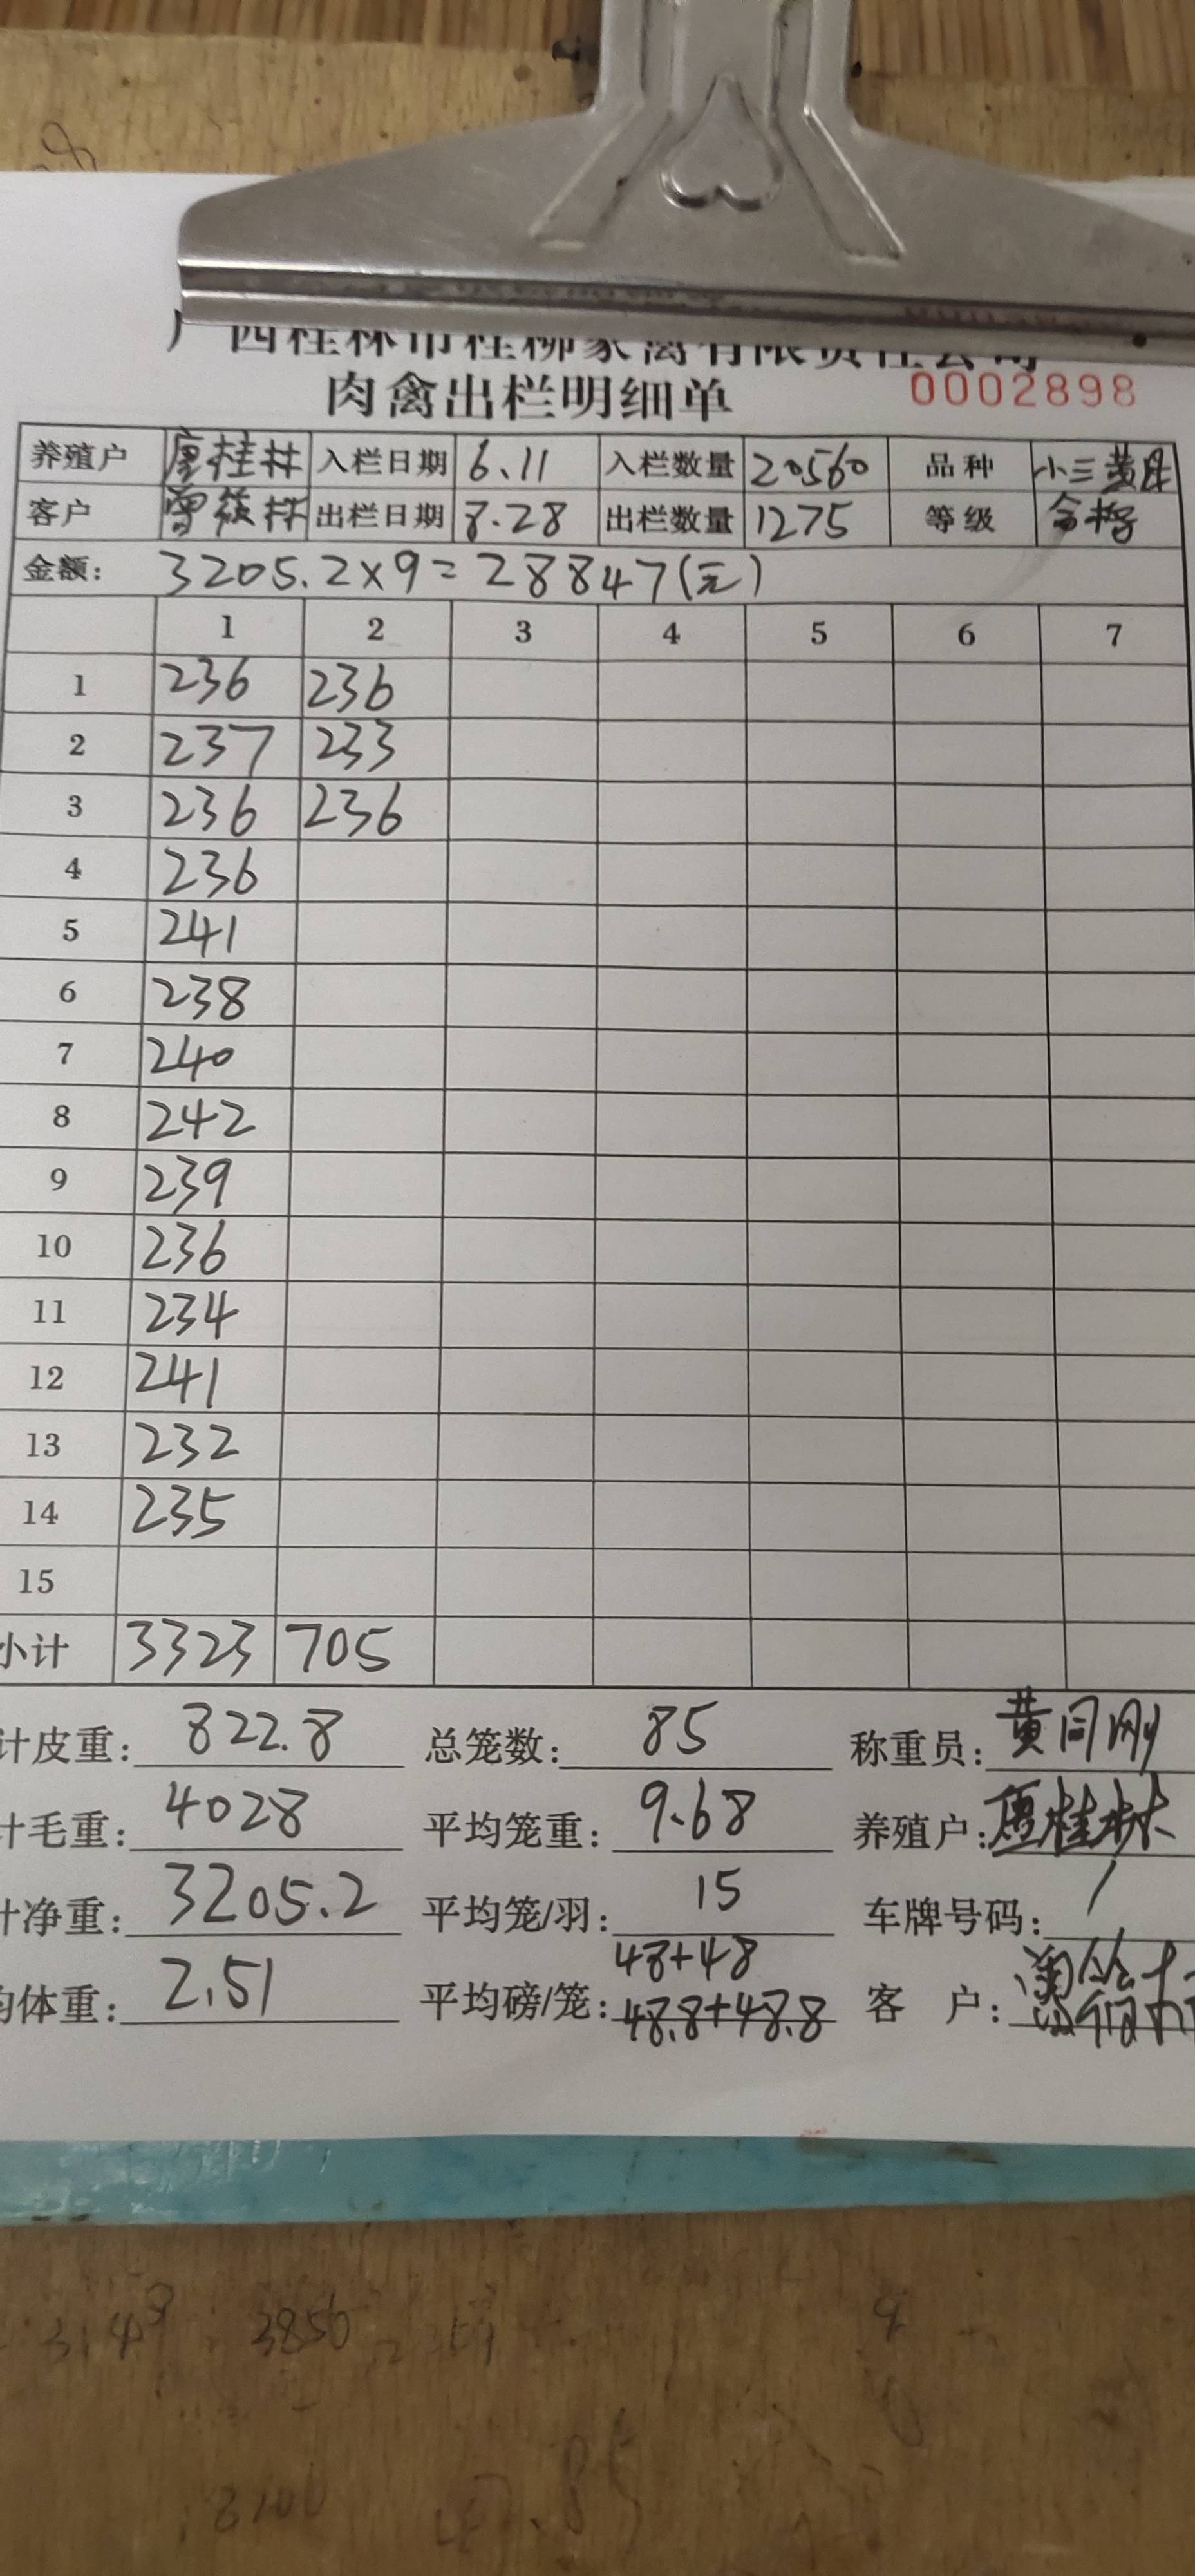 广西桂林市桂柳家禽有限责任公司
肉禽出栏明细单 0002898
养殖户 唐桂林 入栏日期 6.11 入栏数量 20560 品种 小三黄母
客户 出栏日期 8.28 出栏数量 1275 等级 合格
金额: 3205.2×9=28847(元)
1 2 3 4 5 6 7
1 236 236
2 237 233
3 236 236
4 236
5 241
6 238
7 240
8 242
9 239
10 236
11 234
12 241
13 232
14 235
15
小计 3323 705
计皮重: 822.8 总笼数: 85 称重员: 黄同刚
计毛重: 4028 平均笼重: 9.68 养殖户: 唐桂林
计净重: 3205.2 平均笼/羽: 15 车牌号码: /
均体重: 2.51 平均磅/笼: 48+48 48.8+48.8 客户:
3850